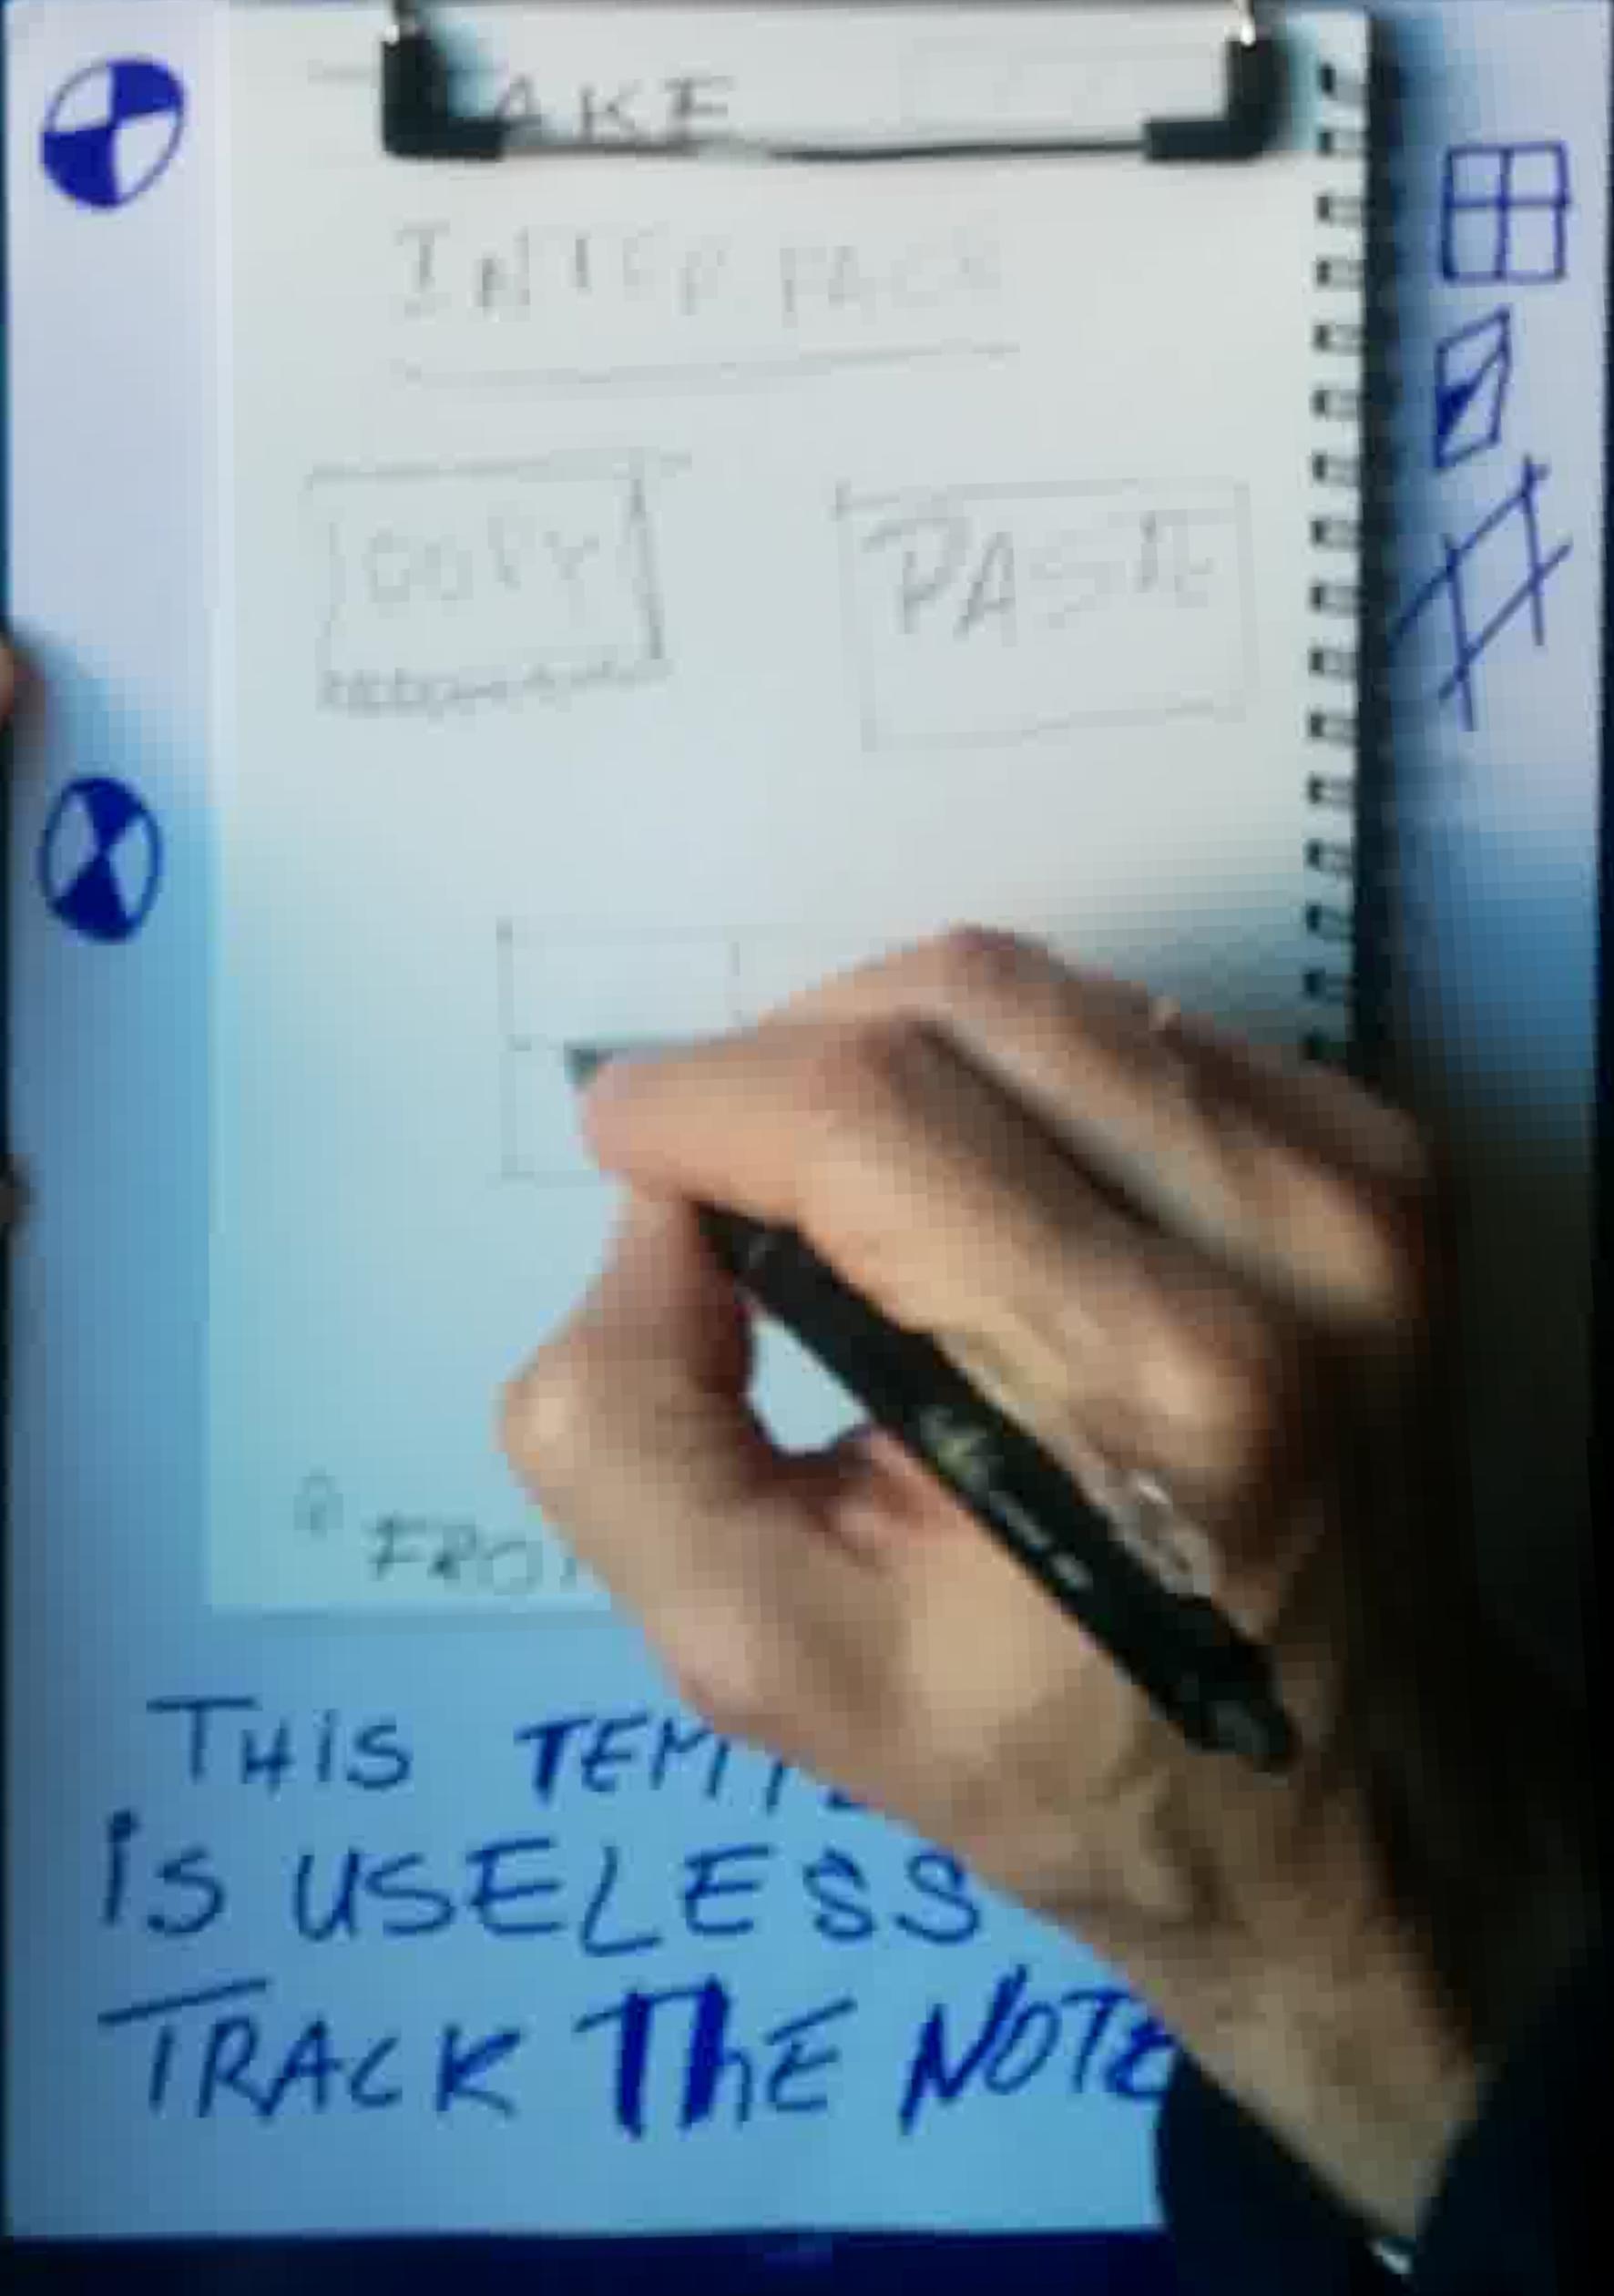 AKE
INTERFACE
COPY
PASTE
FRO
THiS TEMPL
iS USELESS
TRACK ThE NOTE